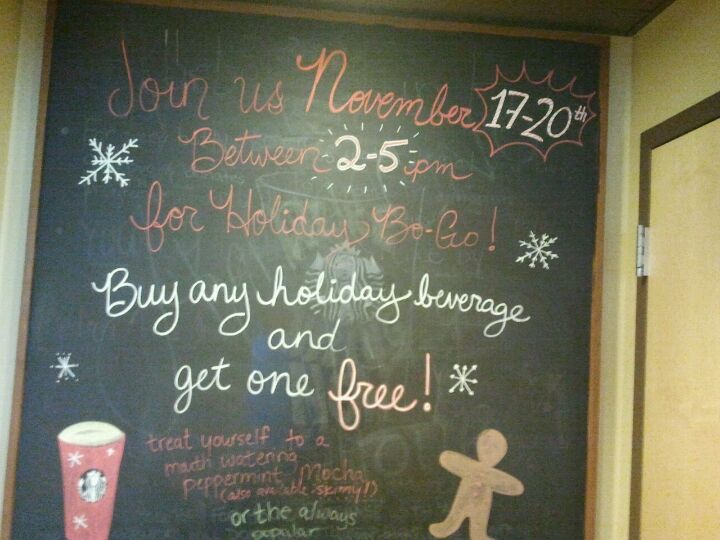 Join us November 17-20th
Between 2-5 pm
for Holiday Bo-Go!
Buy any holiday beverage
and
get one free!
treat yourself to a
mouth watering
peppermint Mocha
(also available skinny!)
or the always
popular